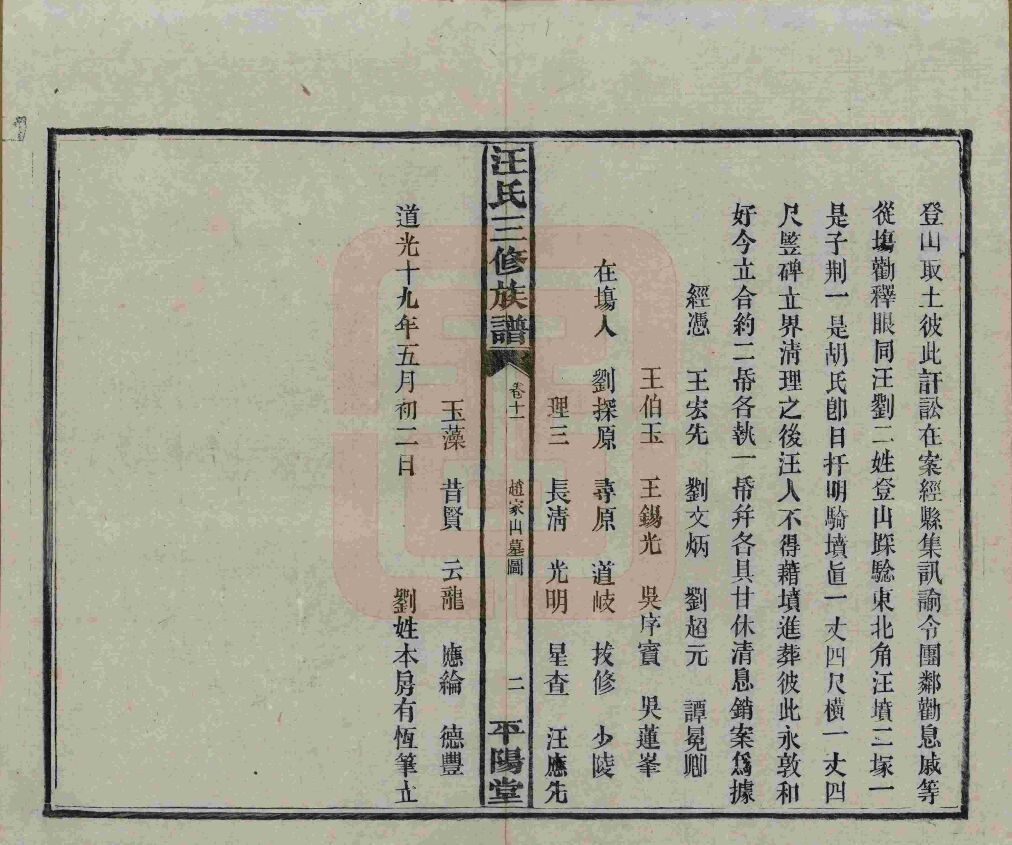 登山取土彼此訐訟在案經縣集訊諭令團鄰勸息戚等
從塲勸釋眼同汪劉二姓登山踩騐東北角汪墳二塚一
是子荆一是胡氏卽日扦明騎墳直一丈四尺横一丈四
尺竪碑立界清理之後汪人不得藉墳進葬彼此永敦和
好今立合約二帋各執一帋并各具甘休清息銷案爲據
經憑 王宏先 劉文炳 劉超元 譚冕卿
王伯玉 王錫光 吳序賓 吳蓮峯
在塲人 劉探原 尋原 道岐 拔修 少陵
理三 長清 光明 星查 汪應先
汪氏三修族譜 卷十一 趙家山墓圖 二 平陽堂
玉藻 昔賢 云龍 應綸 德豐
道光十九年五月初二日 劉姓本房有恆筆立